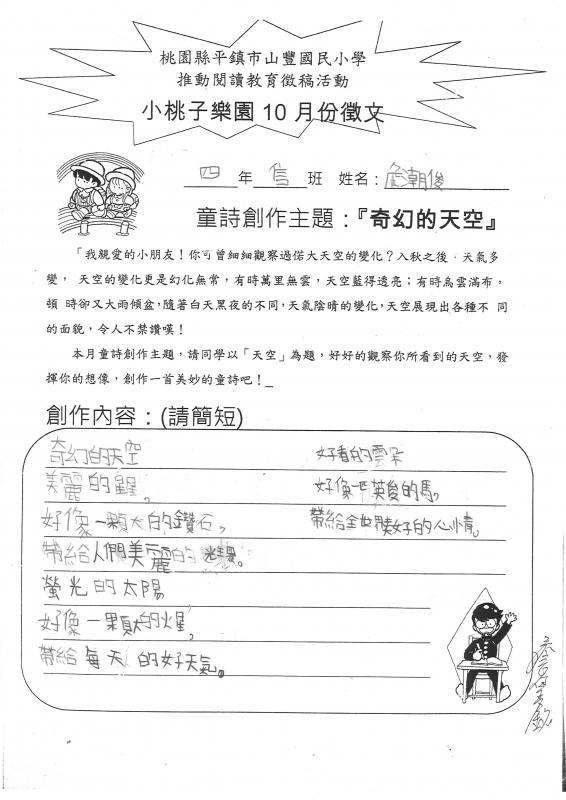 桃園縣平鎮市山豐國民小學
推動閱讀教育徵稿活動
小桃子樂園 10 月份徵文
四年信班 姓名:詹朝俊
童詩創作主題:『奇幻的天空』
「我親愛的小朋友!你可曾細細觀察過偌大天空的變化?入秋之後,天氣多
變, 天空的變化更是幻化無常,有時萬里無雲,天空藍得透亮;有時烏雲滿布,
頓 時卻又大雨傾盆,隨著白天黑夜的不同,天氣陰晴的變化,天空展現出各種不 同
的面貌,令人不禁讚嘆!
本月童詩創作主題,請同學以「天空」為題,好好的觀察你所看到的天空,發
揮你的想像,創作一首美妙的童詩吧!_
創作內容:(請簡短)
奇幻的天空
美麗的星星,
好像一顆大的鑽石,
帶給人們美麗的光芒。
螢光的太陽
好像一顆大的火星,
帶給每天的好天氣。
好看的雲朵
好像一匹英俊的馬。
帶給全世界美好的人心情。